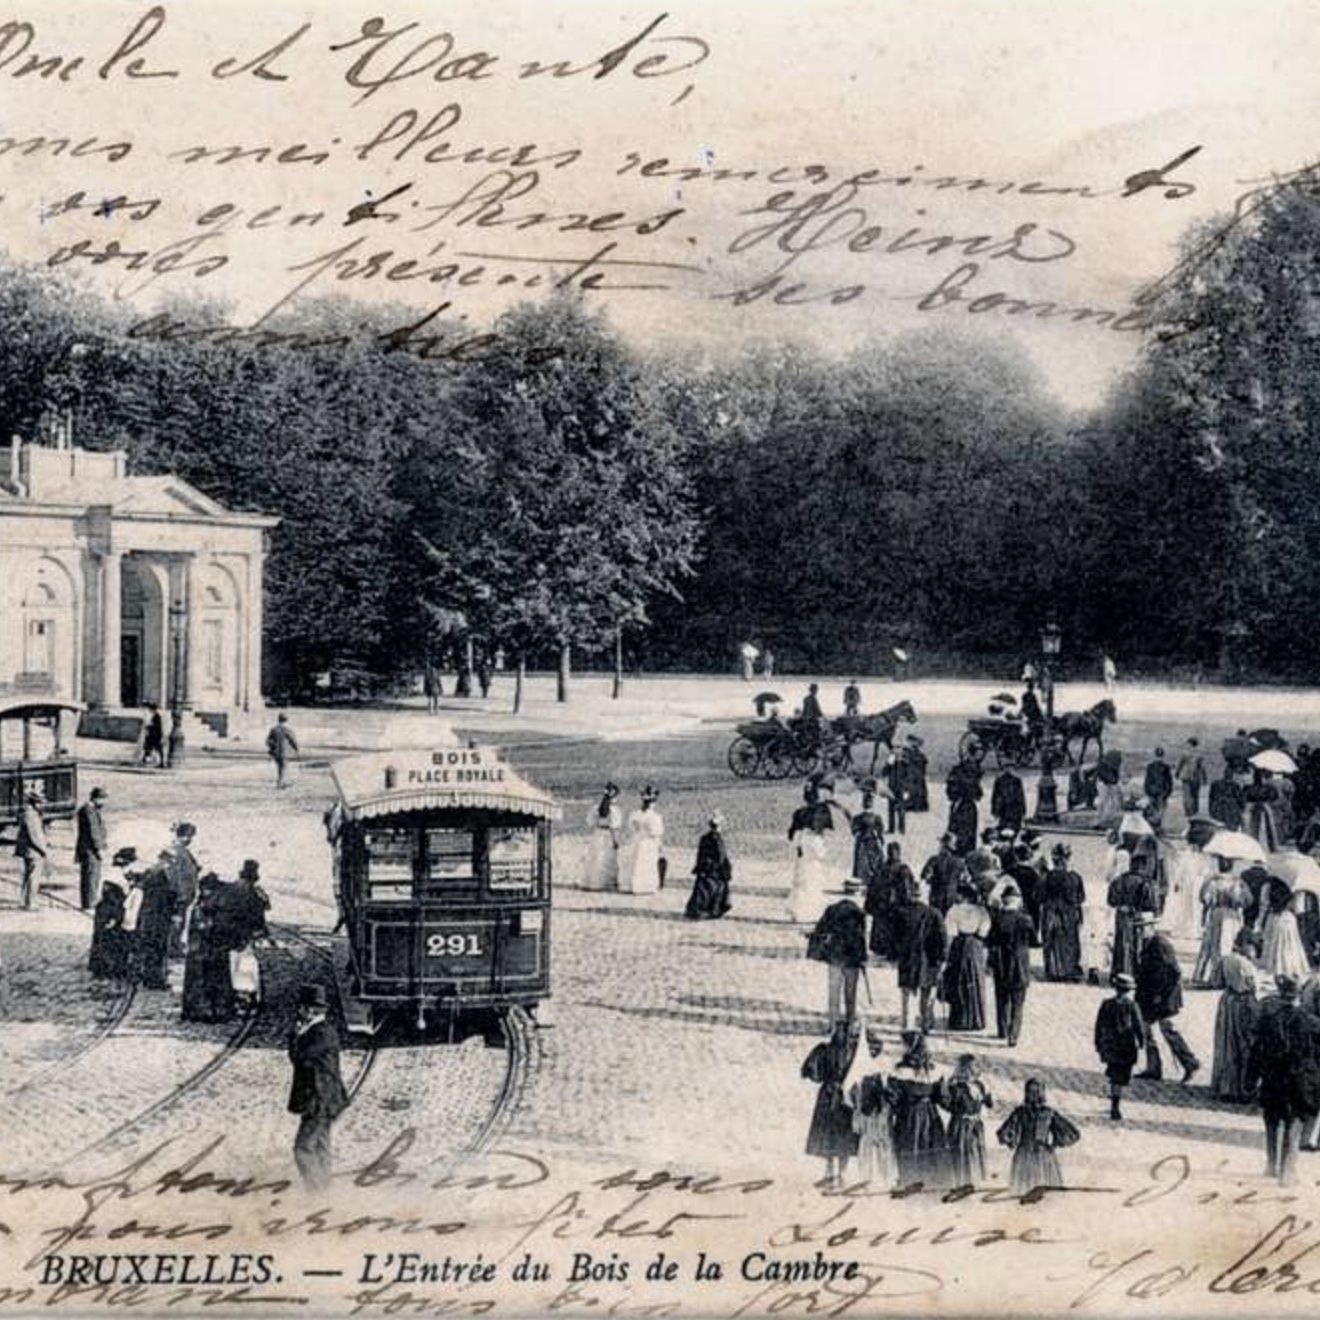 Oncle et Tante,
mes meilleurs remerciments
vos gentillesses. Heinz
vous présente ses bonnes
amitiés
BOIS
PLACE ROYALE
291
comptons bien vous
nous irons fêter Louise
BRUXELLES. — L'Entrée du Bois de la Cambre
embrasse tous bien fort